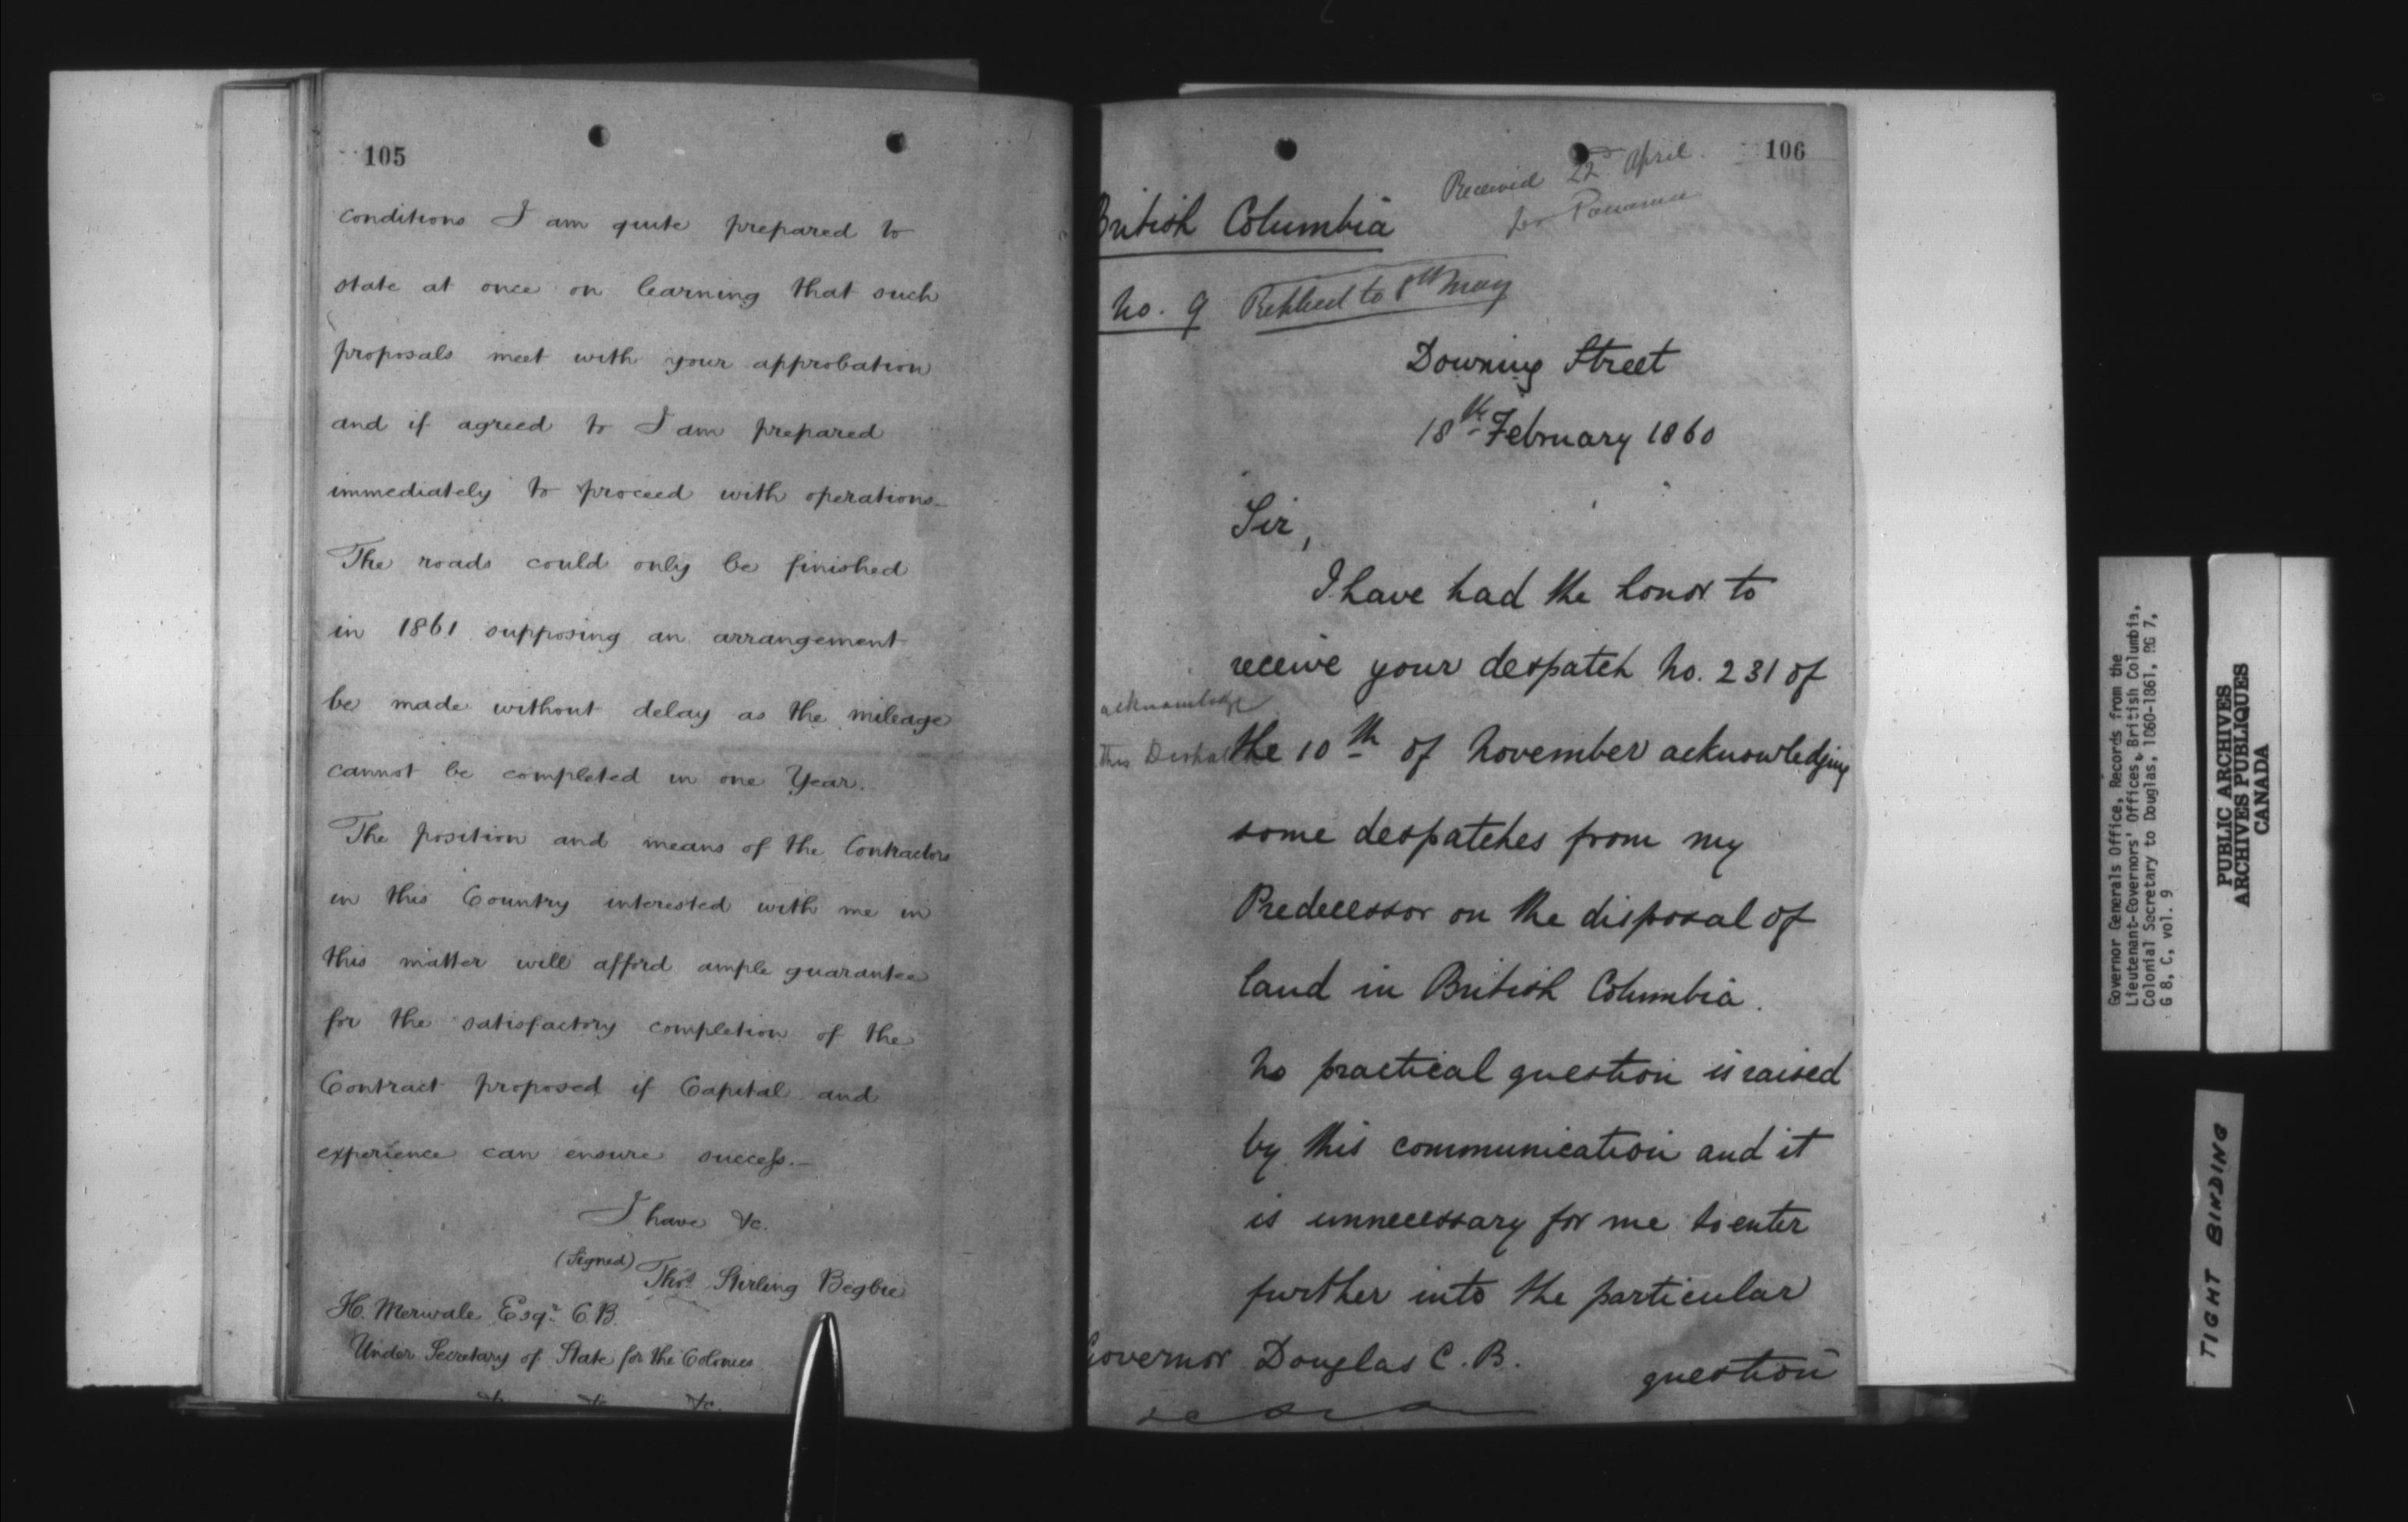 105
conditions I am quite prepared to
state at once on learning that such
proposals meet with your approbation
and if agreed to I am prepared
immediately to proceed with operations_
The roads could only be finished
in 1861 supposing an arrangement
be made without delay as the mileage
cannot be completed in one Year.
The position and means of the Contractors
in this Country interested with me in
this matter will afford ample guarantee
for the satisfactory completion of the
Contract proposed if Capital and
experience can ensure success._
I have &c.
(Signed) Thos. Stirling Begbie
H. Merivale Esqr. C.B.
Under Secretary of State for the Colonies
&c. &c. &c.
106
Received 22d April.
per Panama
British Columbia
No. 9 Replied to 8th May
Downing Street
18th February 1860
Sir,
I have had the honor to
receive your despatch No. 231 of
acknowledge
this
the 10th of November acknowledging
some despatches from my
Predecessor on the disposal of
land in British Columbia.
No practical question is raised
by this communication and it
is unnecessary for me to enter
further into the particular
Governor Douglas C.B.
question
Governor Generals Office, Records from the
Lieutenant-Governors' Offices, British Columbia,
Colonial Secretary to Douglas, 1860-1861, RG 7,
G 8, C, vol. 9
PUBLIC ARCHIVES
ARCHIVES PUBLIQUES
CANADA
TIGHT BINDING